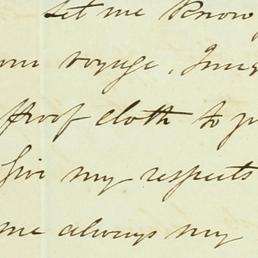 Let me know
voyage.
proof cloth to
Give my respects
me always my